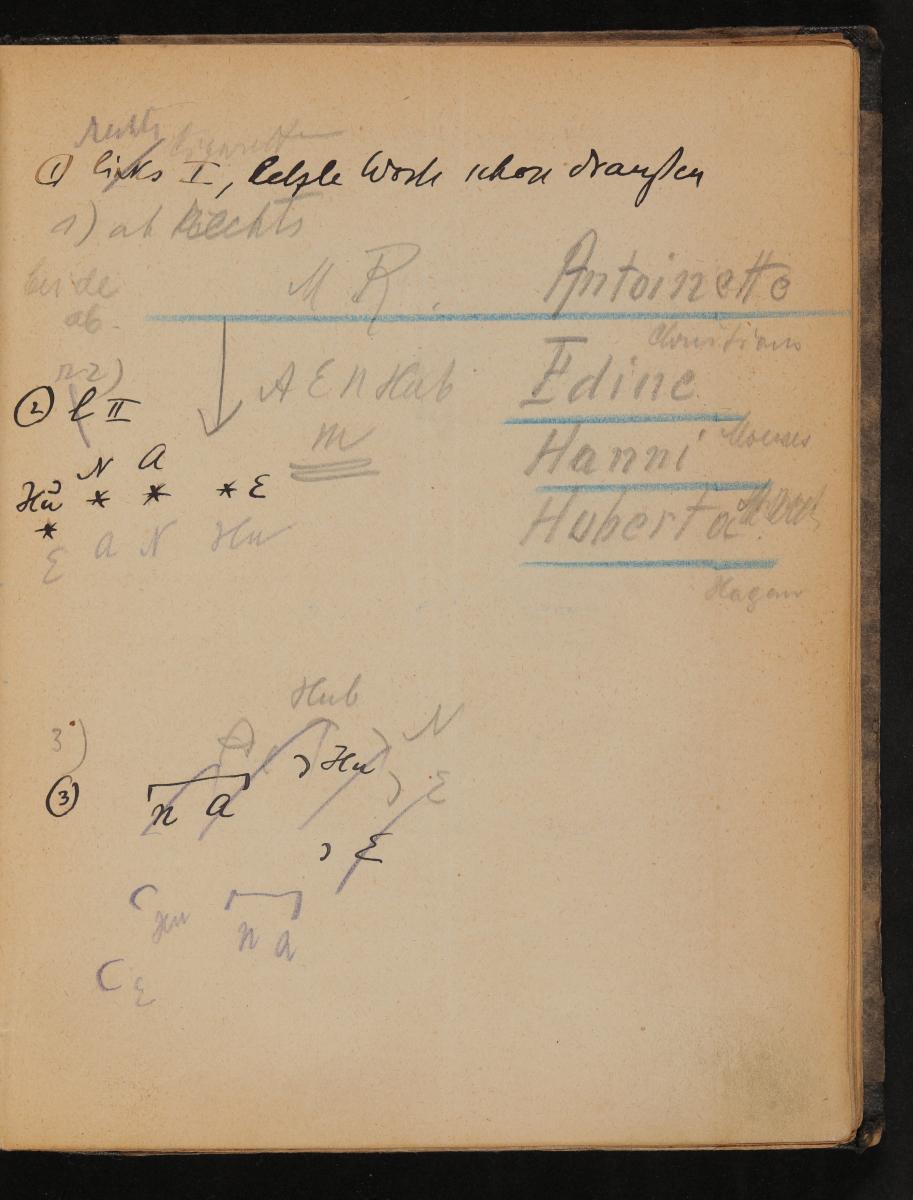 Rechts
① links I, letzte Worte schon draußen
1) ab Rechts
beide
ab.
M R.
Antoinette
Edine
A E N Hub
M
Hanni
Huberta
2)
② l II
N A
Hu * * * E
*
E A N Hu
Hagen
Hub
3)
A N
Hu
③
n a
E
E
Hu
n a
E